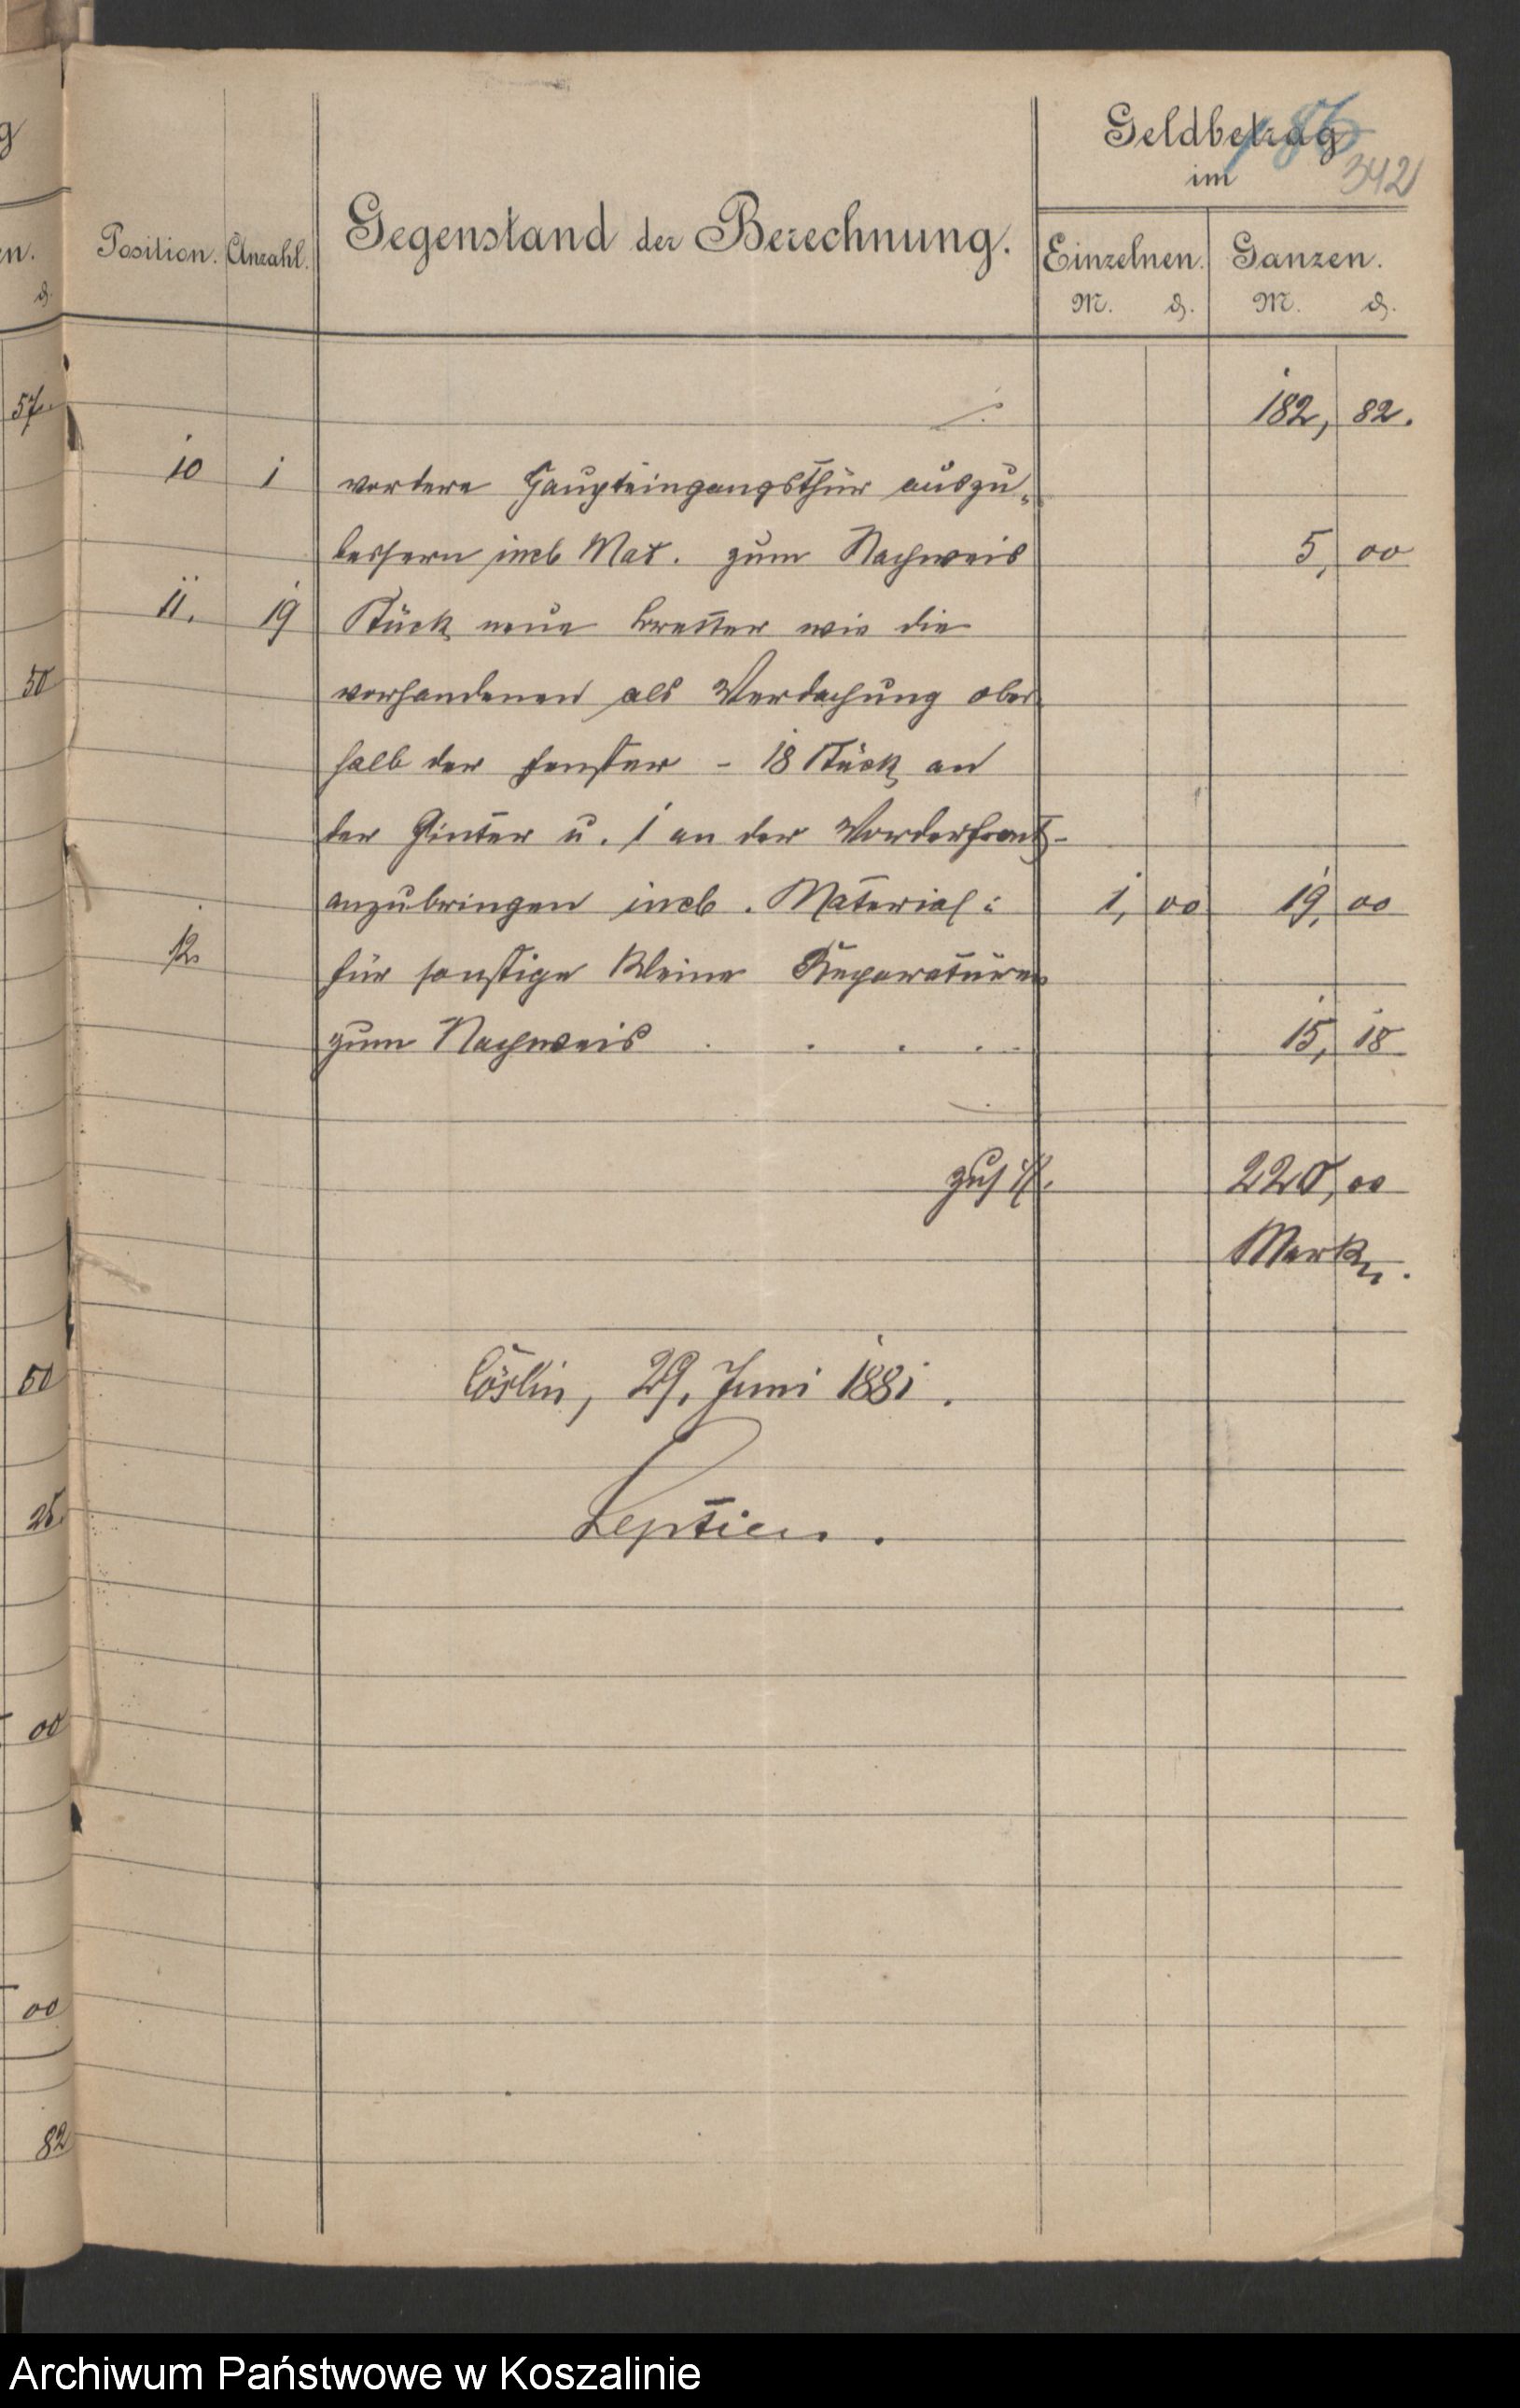 Geldbetrag
im
186
342
Position. Anzahl. Gegenstand der Berechnung. Einzelnen. Ganzen.
M. ₰. M. ₰.
182, 82.
10 1 vordere Haupteingangsthür auszu-
bessern incl Mat. zum Nachweis 5, 00
11. 19 Stück neue Bretter wie die
vorhandenen als Verdachung ober
halb der Fenster - 18 Stück an
der Hinter u. 1 an der Vorderfront -
anzubringen incl. Material: 1, 00 19, 00
12. für sonstige kleine Reparaturen
zum Nachweis . . . . 15, 18
220, 00
Mark.
Cöslin, 29. Juni 1881.
Leptien.
57.
50
50
25.
00
00
82
Archiwum Państwowe w Koszalinie